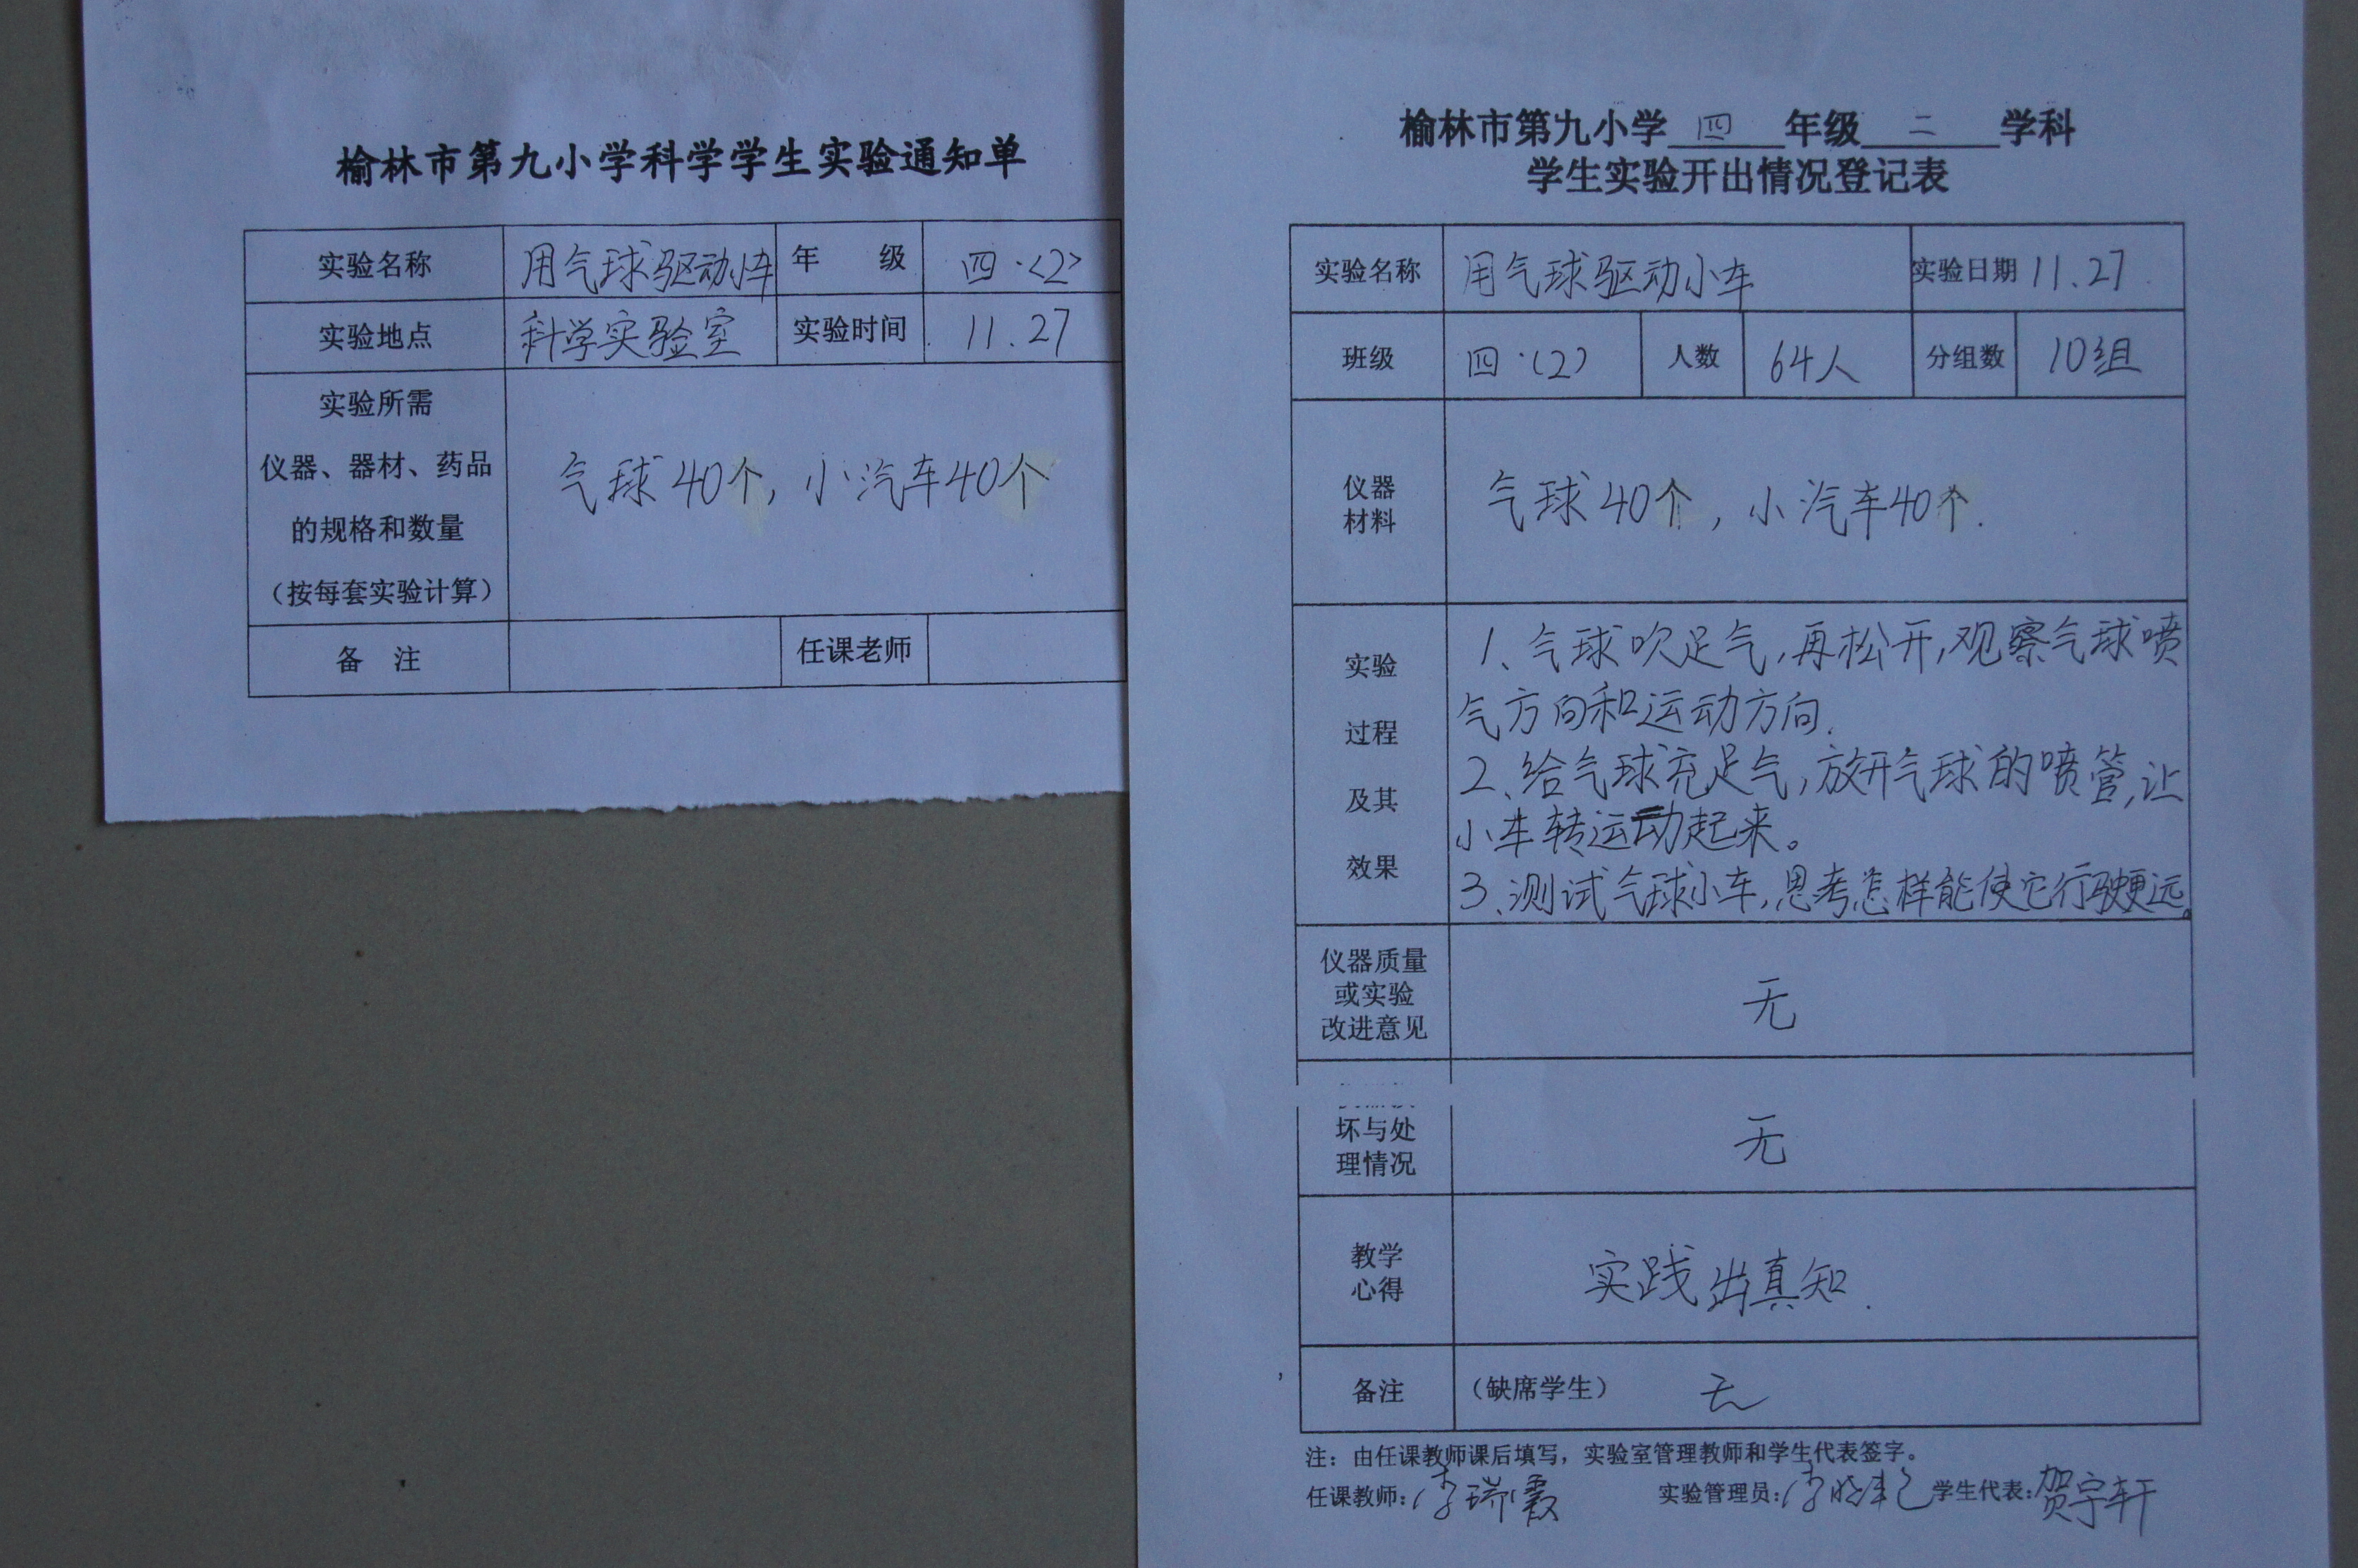 榆林市第九小学科学学生实验通知单
实验名称 用气球驱动小车 年 级 四·<2>
实验地点 科学实验室 实验时间 11.27
实验所需
仪器、器材、药品
的规格和数量
（按每套实验计算）
气球40个，小汽车40个
备 注 任课老师
榆林市第九小学 四 年级 二 学科
学生实验开出情况登记表
实验名称 用气球驱动小车 实验日期 11.27
班级 四·(2) 人数 64人 分组数 10组
仪器
材料
气球40个，小汽车40个.
实验
过程
及其
效果
1、气球吹足气，再松开，观察气球喷
气方向和运动方向.
2、给气球充足气，放开气球的喷管，让
小车转运动起来。
3、测试气球小车，思考怎样能使它行驶更远。
仪器质量
或实验
改进意见
无
坏与处
理情况
无
教学
心得
实践出真知.
备注 （缺席学生） 无
注：由任课教师课后填写，实验室管理教师和学生代表签字。
任课教师：李瑞霞 实验管理员：李 学生代表：贺宇轩